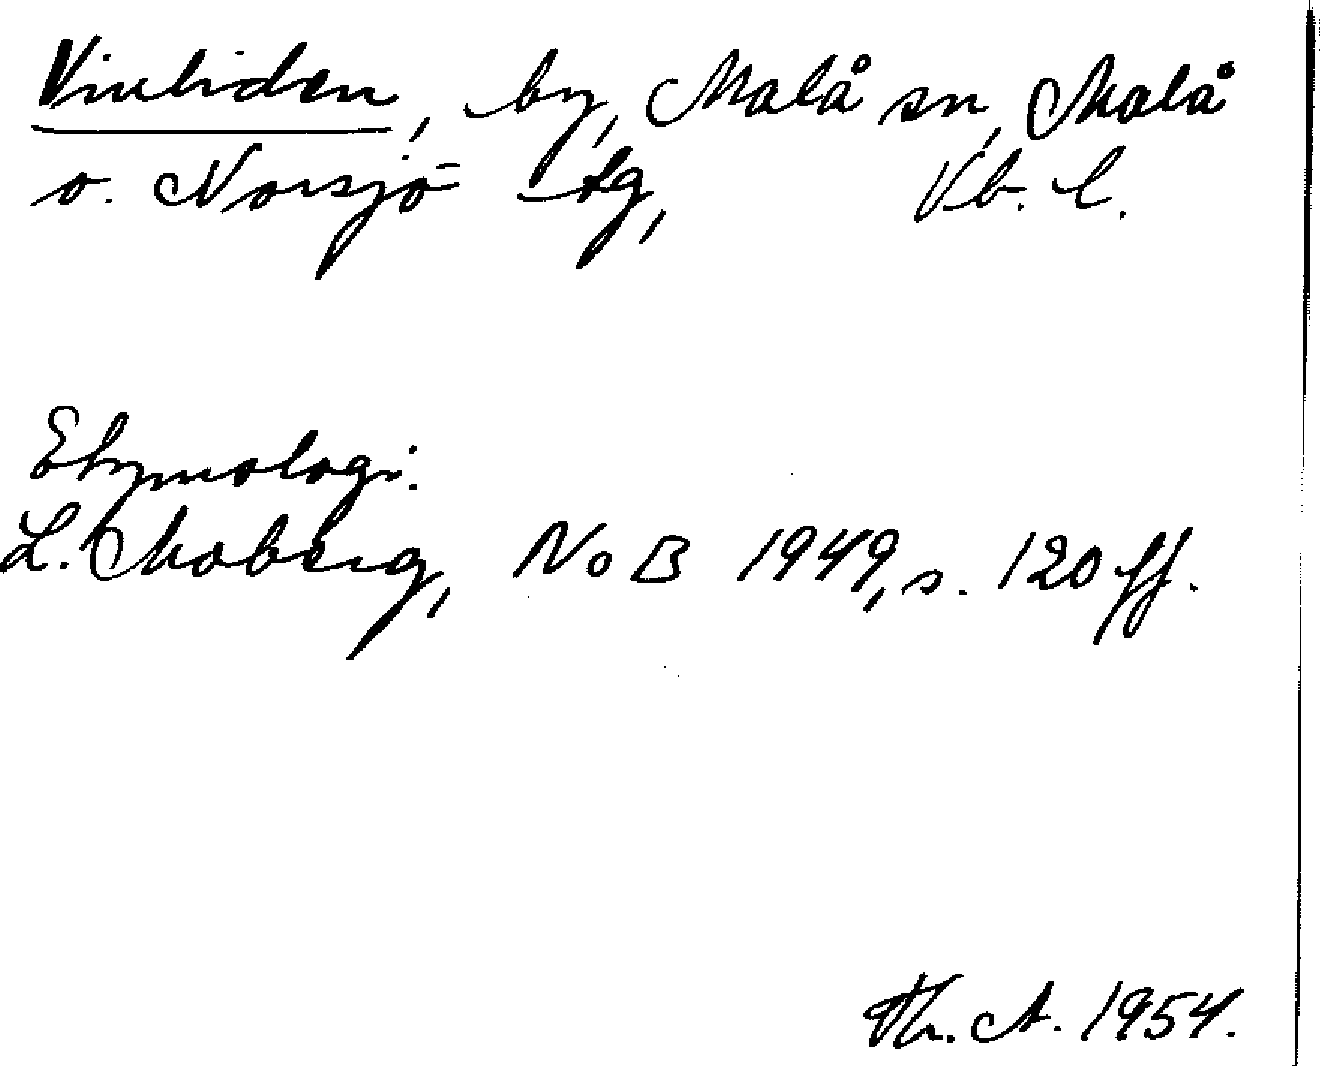 Vinliden, by, Malå sn, Malå
o. Norsjö tg, Vb. l.
Etymologi:
L. Moberg, NoB 1949, s. 120 ff.
Th. A. 1954.